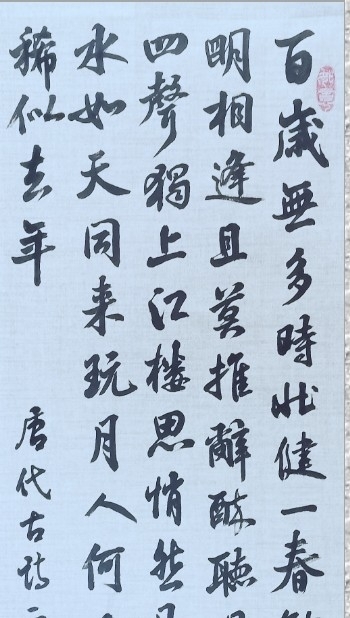 百歲無多時壯健一春
明相逢且莫推辭醉聽
四聲獨上江樓思悄然
水如天同来玩月人何
稀似去年
唐代古詩